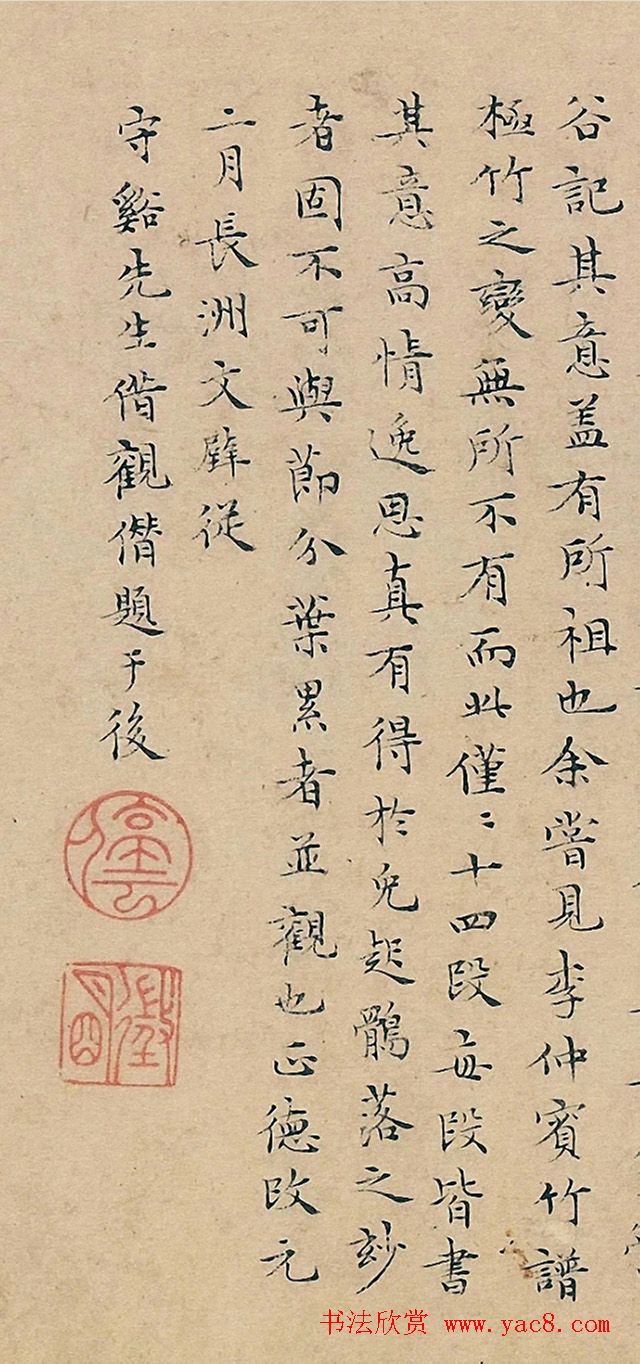 谷記其意盖有所祖也余嘗見李仲賓竹譜
極竹之變無所不有而此僅〻十四段每段皆書
其意高情逸思真有得於兔起鶻落之妙
者固不可與節分葉累者並觀也正德改元
二月長洲文壁從
守谿先生借觀僭題于後
停雲
书法欣赏 www.yac8.com